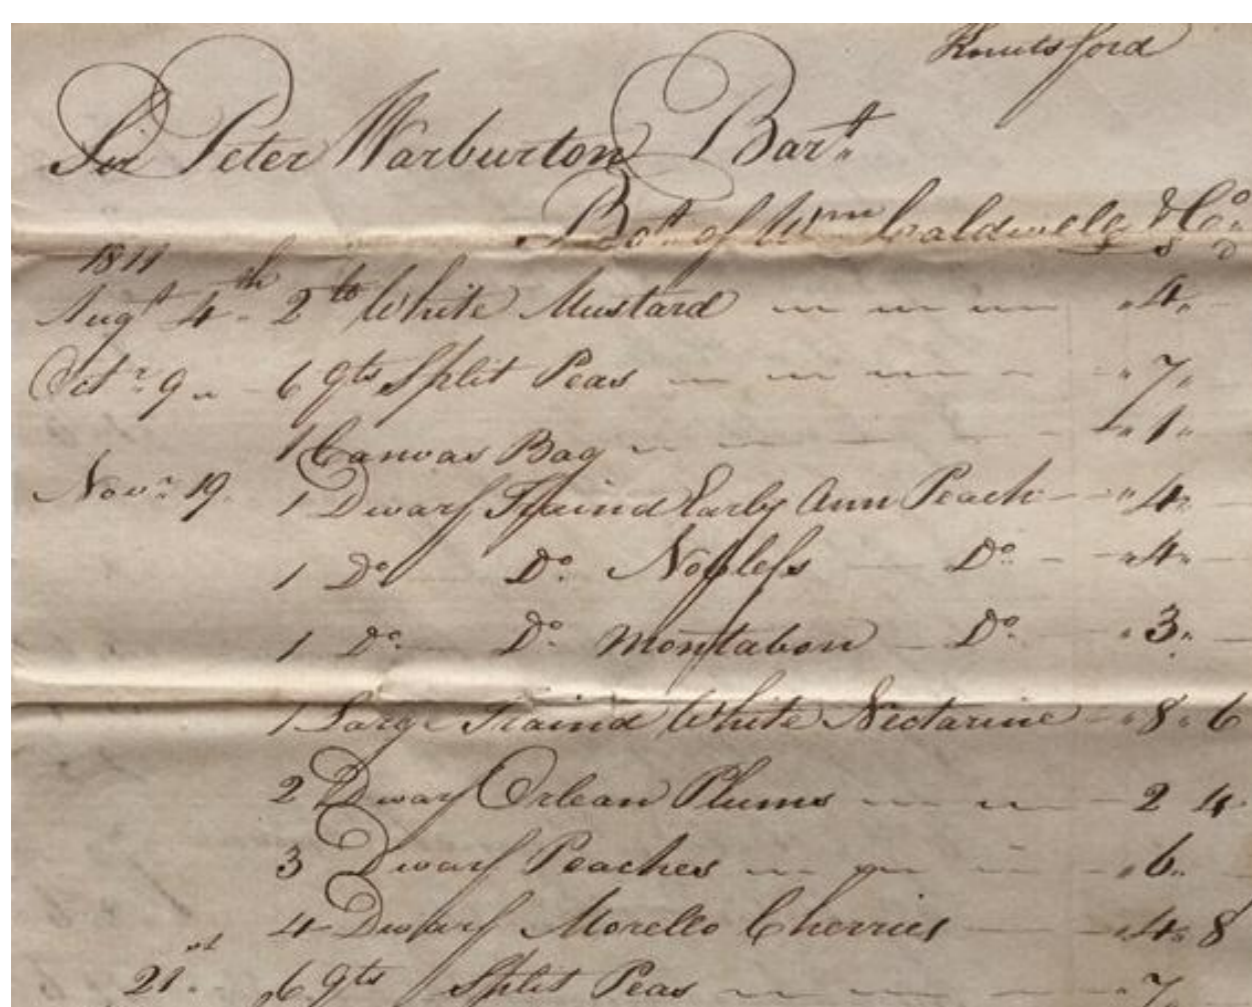 Knutsford
Sir Peter Warburton Bart.
Bot. of Wm Caldwell & Co.
1811 s d
Augt 4th 2 lb White Mustard "4" –
Octr. 9 6 qts Split Peas "7"
1 Canvas Bag "1"
Novr. 19 1 Dwarf Traind Early Ann Peach "4" –
1 Do Do. Nobless Do. "4" –
1 Do. Do. Montabon Do. "3" –
1 Large Traind White Nectarine "8" 6
2 Dwarf Orlean Plums 2 4
3 Dwarf Peaches "6" –
4 Dwarf Morello Cherries "4" 8
21st 6 qts Split Peas "7